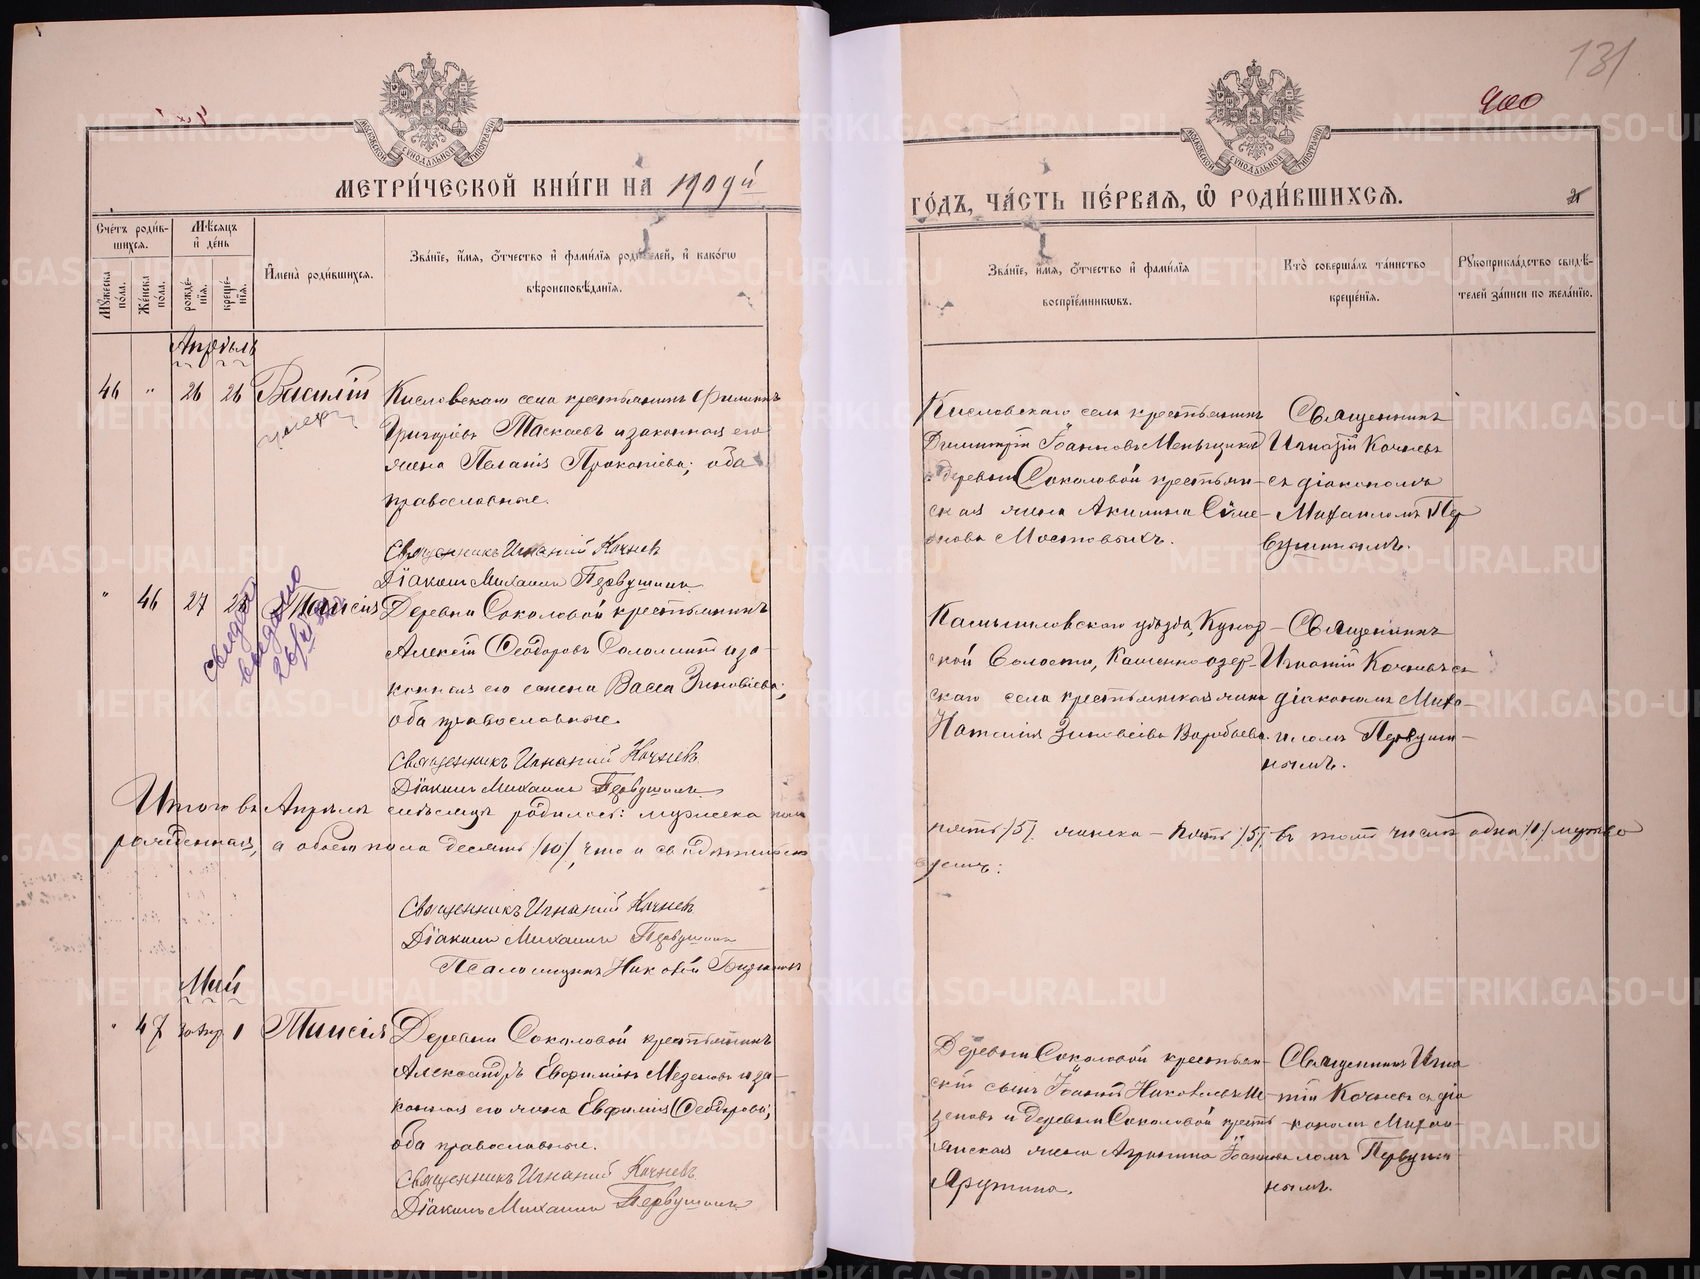 131
400
МЕТРИ́ЧЕСКОЙ КНИ́ГИ НА 1909й
ГО́ДЪ, ЧА́СТЬ ПЕ́РВАЯ, Ѽ РОДИ́ВШИХСЯ.
Сче́тъ роди́в-
шихся.
Мѣ́сяцъ
и де́нь
Му́жеска
по́ла.
Же́нска
по́ла.
рожде́-
нія.
креще́-
нія.
Имена̀ роди́вшихся.
Зва́ніе, и́мя, о́тчество и фами́лія роди́телей, и како́гѡ
вѣроисповѣ́данія.
Зва́ніе, и́мя, о́тчество и фами́лія
воспріе́мникѡвъ.
Кто̀ соверша́лъ та́инство
креще́нія.
Рукоприкла́дство свидѣ́-
телей за́писи по жела́нію.
Апрѣль
46 " 26 26 Василій
Кисловскаго села крестьянинъ Филиппъ
Григорьевъ Таскаевъ и законная его
жена Пелагія Прокопіева; оба
православные.
Священникъ Игнатій Кочневъ
Діаконъ Михаилъ Первушинъ
Кисловскаго села крестьянинъ
Димитрій Іоанновъ Меньщиковъ
и деревни Соколовой крестьян-
ская жена Акилина Симе-
онова Мостовыхъ.
Священникъ
Игнатій Кочневъ
съ діакономъ
Михаиломъ Пер
вушинымъ.
" 46 27 27 Таисія
выдано
Деревни Соколовой крестьянинъ
Алексій Ѳеодоровъ Соломеинъ и за-
конная его жена Васса Зиновіева;
оба православные.
Священникъ Игнатій Кочневъ
Діаконъ Михаилъ Первушинъ
Камышловскаго уѣзда, Кунар-
ской волости, Каменноозер-
скаго села крестьянская жена
Наталія Зиновіева Воробьева.
Священникъ
Игнатій Кочневъ съ
діакономъ Миха-
иломъ Первуши-
нымъ.
Итого въ Апрѣлѣ мѣсяцѣ родилось: мужеска пола
пять /5/, женска – пять /5/, въ томъ числѣ одна /1/ мертво
рожденная, а обоего пола десять /10/, что и свидѣтельству
емъ:
Священникъ Игнатій Кочневъ
Діаконъ Михаилъ Первушинъ
Псаломщикъ
Май
" 47 30 Апр 1 Таисія
Деревни Соколовой крестьянинъ
Александръ Евфиміевъ Мезеновъ и за-
конная его жена Евфимія Ѳеодорова;
оба православные.
Священникъ Игнатій Кочневъ
Діаконъ Михаилъ Первушинъ
Деревни Соколовой крестьян-
скій сынъ Іоаннъ Николаевъ Ме-
зеновъ и деревни Соколовой кресть-
янская жена Агриппина Іоаннова
Священникъ Игна
тій Кочневъ съ діа
кономъ Михаи-
ломъ Первуши-
нымъ.
METRIKI.GASO-URAL.RU